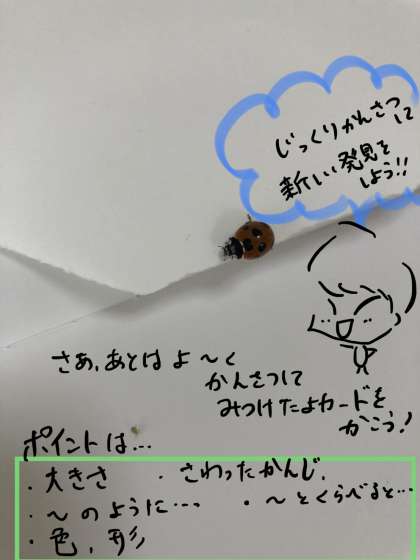 じっくりかんさつして
新しい発見を
しよう!!
さあ、あとは よ〜く
かんさつして
みつけたよカードを、
かこう!
ポイントは...
・大きさ ・さわったかんじ、
・〜のように... ・〜とくらべると...
・色、形